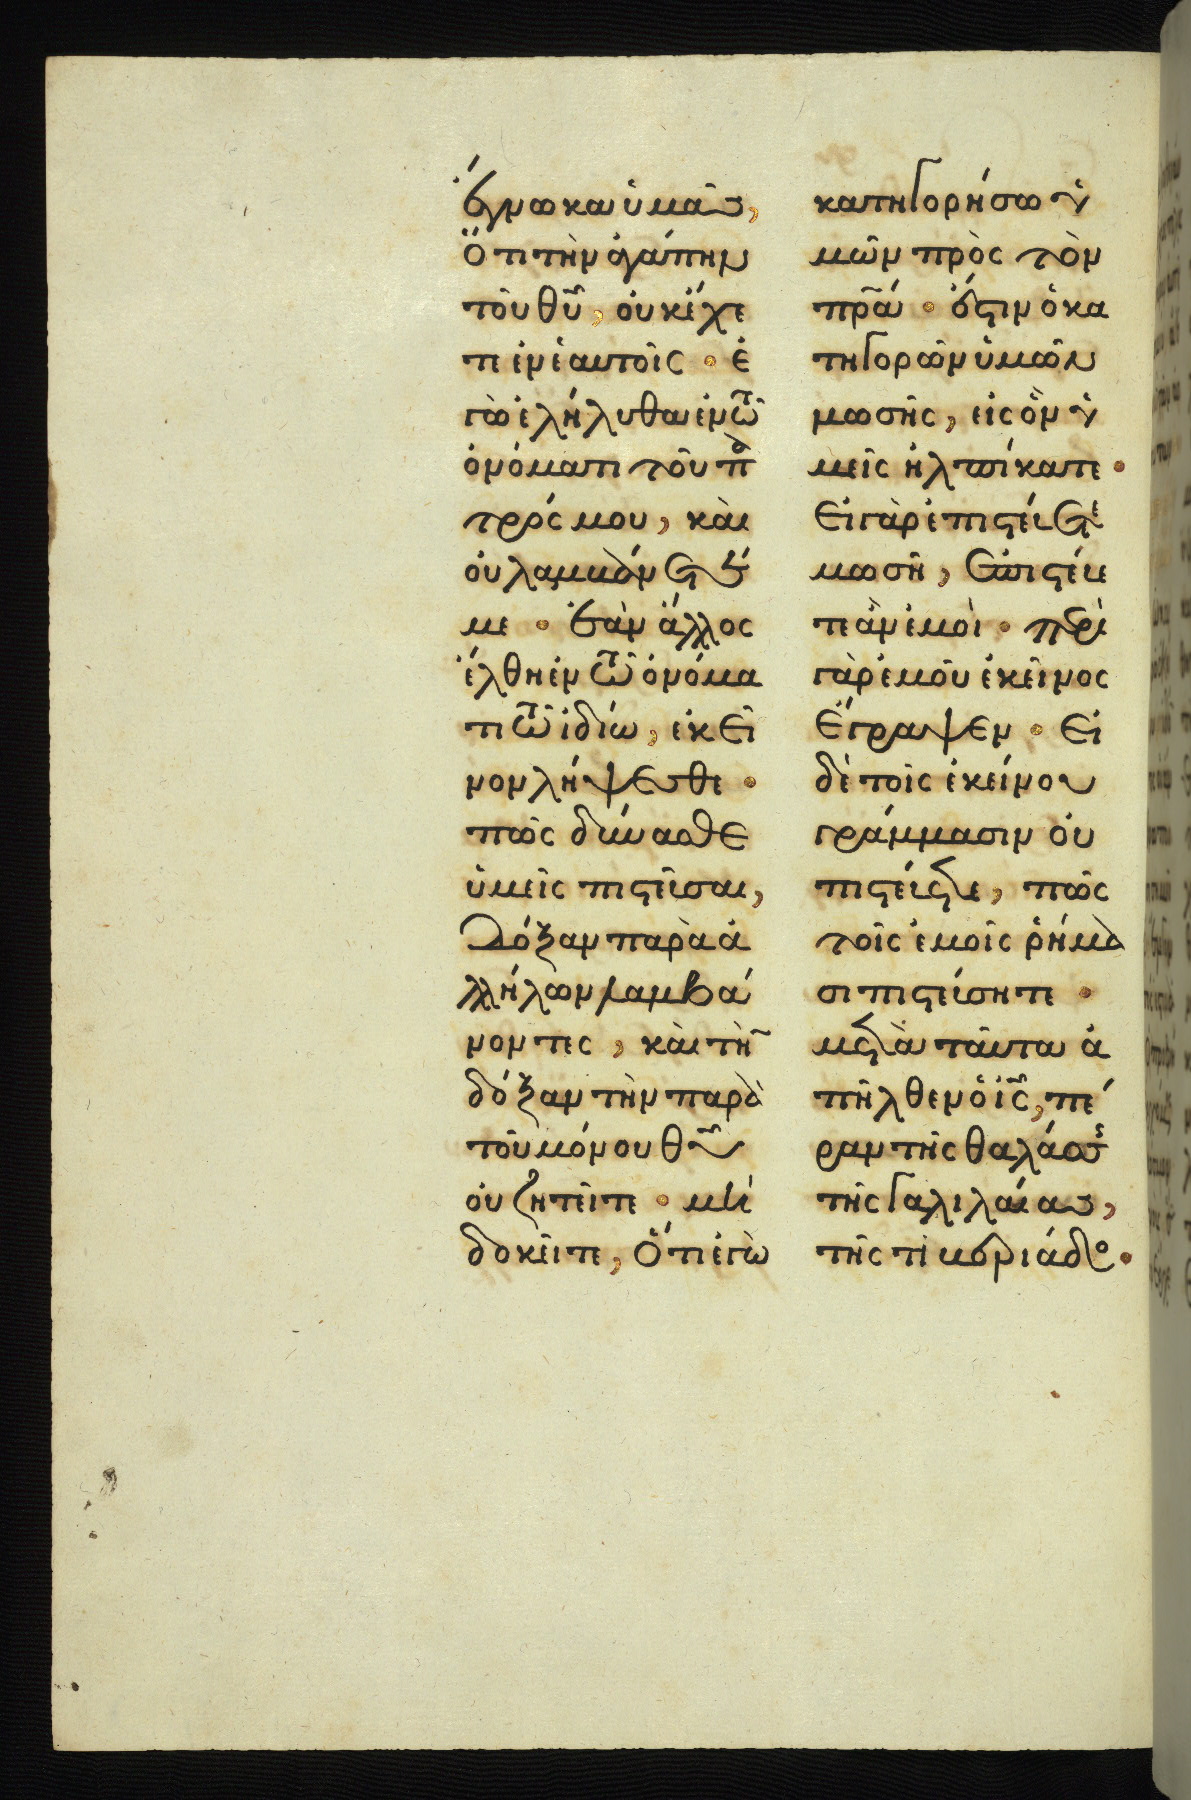 ἔγνωκα ὑμᾶς,
Ὅτι τὴν ἀγάπην
τοῦ θῦ, οὐκ ἔχε
τε ἐν ἑαυτοῖς · ἐ
γὼ ἐλήλυθα ἐν τῶ
ὀνόματι τοῦ πα
τρός μου, καὶ
οὐ λαμβάνετέ
με · ἐὰν ἄλλος
ἔλθη ἐν τῶ ὀνόμα
τι τῶ ἰδίω, ἐκεῖ
νον λήψεσθε ·
πῶς δύνασθε
ὑμεῖς πιστεῦσαι,
Δόξαν παρὰ ἀ
λλήλων λαμβά
νοντες, καὶ τὴν
δόξαν τὴν παρὰ
τοῦ μόνου θῦ
οὐ ζητεῖτε · μὴ
δοκεῖτε, Ὅτι ἐγὼ
κατηγορήσω ὑ
μῶν πρὸς τὸν
πρᾶ · ἔστιν ὁ κα
τηγορῶν ὑμῶν
μωσῆς, εἰς ὃν ὑ
μεῖς ἠλπίκατε ·
Εἰ γὰρ ἐπιστεύετε
μωσῆ, ἐπιστεύε
τε ἂν ἐμοὶ · περὶ
γὰρ ἐμοῦ ἐκεῖνος
Ἔγραψεν · Εἰ
δὲ τοῖς ἐκείνου
γράμμασιν οὐ
πιστεύετε, πῶς
τοῖς ἐμοῖς ῥήμα
σι πιστεύσητε ·
μετὰ ταῦτα ἀ
πῆλθεν ὁ ἰς, πέ
ραν τῆς θαλάσσης
τῆς Γαλιλαίας,
τῆς τιβεριάδος ·